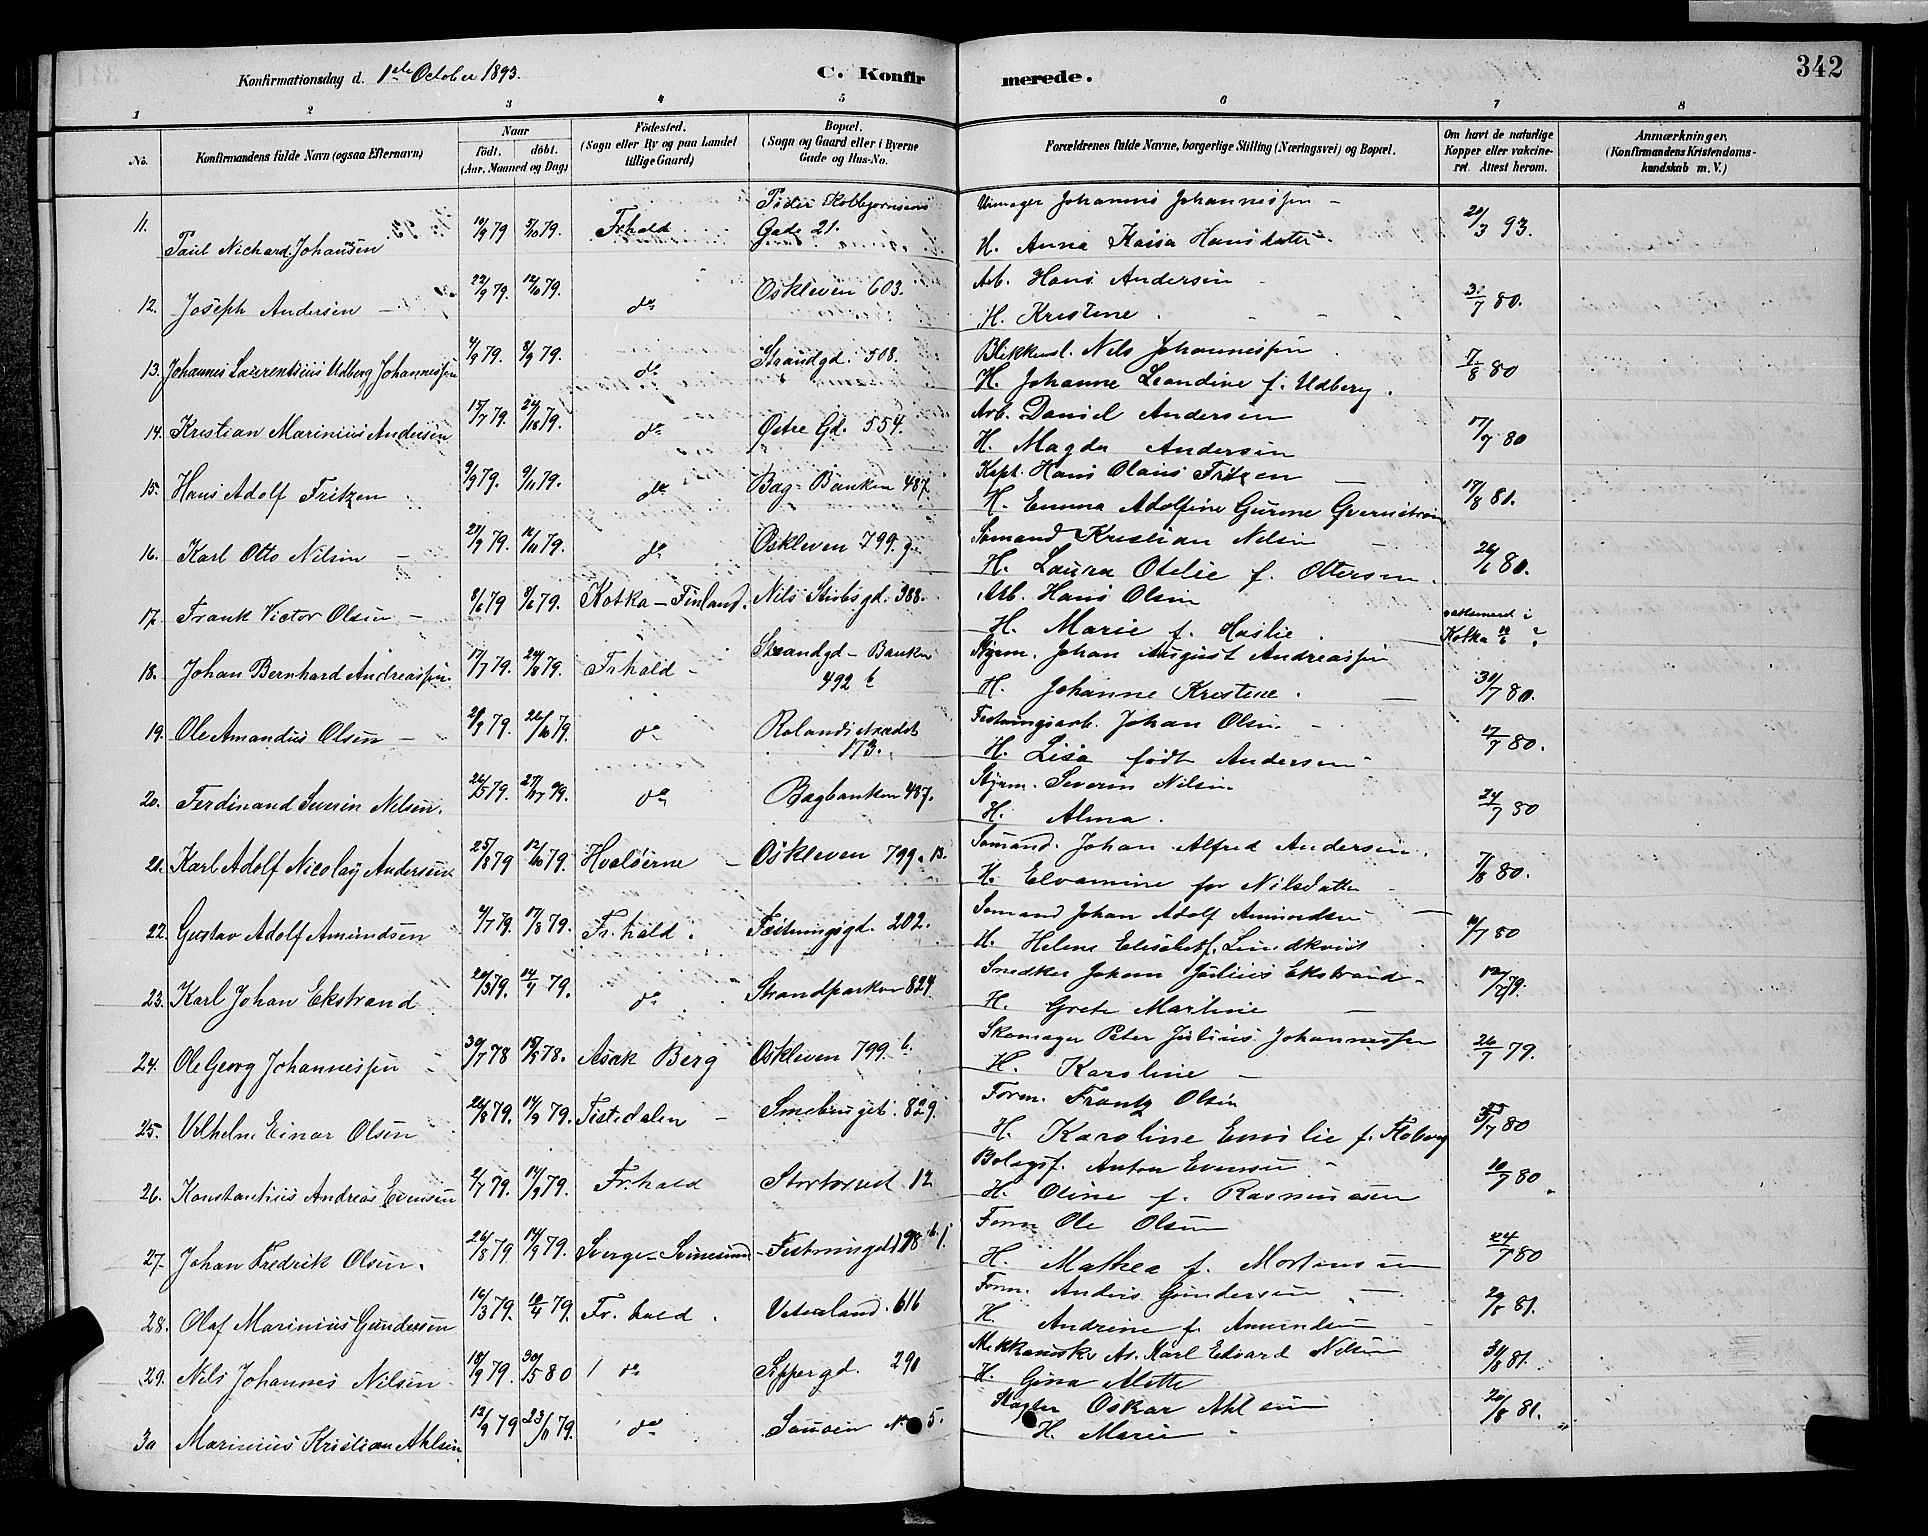 342
Konfirmationsdag d. 1ste October 1893. C. Konfirmerede.
1 2 3 4 5 6 7 8
No. Konfirmandens fulde Navn (ogsaa Efternavn) Naar født. døbt. (Aar, Maaned og Dag) Fødested. (Sogn eller By og paa Landet tillige Gaard) Bopæl. (Sogn og Gaard eller i Byerne Gade og Hus-No. Forældrenes fulde Navne, borgerlige Stilling (Næringsvei) og Bopæl. Om havt de naturlige Kopper eller vakcineret. Attest herom. Anmærkninger. (Konfirmandens Kristendomskundskab m. V.)
11. Paul Richard Johansen 10/9 79 5/10 79. Frhald Peder Kolbjørnsens Gade 21. Urmager Johannes Johannessen
H. Anna Kaisa Hansdatter 20/3 93.
12. Joseph Andersen 22/9 79. 12/10 79. do Oskleven 603. Arb. Hans Andersen
H. Kristine 31/7 80.
13. Johannes Laurentsius Udberg Johannessen 4/9 79. 8/9 79. do Strandgd. 508. Blikkensl. Nils Johannessen
H. Johanne Leandine f. Udberg. 7/8 80
14. Kristian Marinius Andersen 15/7 79. 24/8 79. do Østre Gd. 554. Arb. Daniel Andersen
H. Magda Andersen 17/7 80
15. Hans Adolf Fritzen 9/9 79. 9/11 79. do Bag-Banken 487 Kapt. Hans Olaus Fritzen
H. Emma Adolfine Gurine 17/8 81.
16. Karl Otto Nilsen 21/9 79. 16/11 79. do Oskleven 799. Sømand Kristian Nilsen
H. Laura Otelie f. Ottersen. 26/6 80.
17. Frank Victor Olsen 8/6 79 9/6 79. Kotka - Finland. Nils Stubsgd. 388. Arb. Hans Olsen
H. Marie f. Haslie. vaksineret i Kotka
18. Johan Bernhard Andreassen. 17/7 79. 24/8 79. Frhald Strandgd - Banken 492 b Styrm. Johan August Andreassen
H. Johanne Kristine. 31/7 80.
19. Ole Amandus Olsen 21/9 79. 26/10 79. do Rolandstrædet 173. Festningsarb. Johan Olsen
H. Lisa født Andersen 17/7 80.
20. Ferdinand Severin Nilsen. 26/5 79. 27/7 79. do Bagbanken 487. Styrm. Severin Nilsen
H. Alma. 24/7 80
21. Karl Adolf Nicolay Andersen 25/8 79 12/10 79. Hvaløerne Oskleven 799. Sømand. Johan Alfred Andersen.
H. Elvamine for Nilsdatter 7/8 80.
22. Gustav Adolf Amundsen 4/7 79. 17/8 79. Fr.hald. Festningsgd. 202. Sømand Johan Adolf Amundsen
H. Helene Elisabet f. Lundkvist 10/7 80
23. Karl Johan Ekstrand 20/3 79. 14/4 79. do Strandparken 824 Snedker Johan Julius Ekstrand
H. Grete Martine 12/7 79.
24. Ole Georg Johannessen 30/7 78 15/9 78. Asak Berg Oskleven 799. b. Skomager Peter Julius Johannessen
H. Karoline 26/7 79.
25. Vilhelm Einar Olsen 26/8 79. 14/9 79. Tistedalen Smebruget. 829. Form. Frantz Olsen
H. Karoline Emilie f. Floberg 31/7 80
26. Konstantius Andreas Evensen 2/7 79. 14/9 79. Fr.hald Stortorvet 12 Bolagsf. Anton Evensen
H. Oline f. Rasmussen 10/7 80.
27. Johan Fredrik Olsen. 26/8 79. 14/9 79. Sverge - Svinesund Festningsgd 198 b. Form Ole Olsen
H. Mathea f. Mortensen 24/7 80
28. Olaf Marinius Gundersen 16/3 79. 10/4 79. Fr.hald. Veterland. 616 Form. Anders Gundersen
H. Andrine f. Amundsen 29/8 81.
29. Nils Johannes Nilsen 18/9 79. 30/5 80 do Seppergd. 290 Mekkaniske Ar. Karl Edvard Nilsen
H. Gina Alette 31/8 81.
30 Marinius Kristian Ahlsen. 12/9 79 23/11 79. do Sauøen No 5. Slagter Oskar Ahlsen
H. Marie 20/8 81.